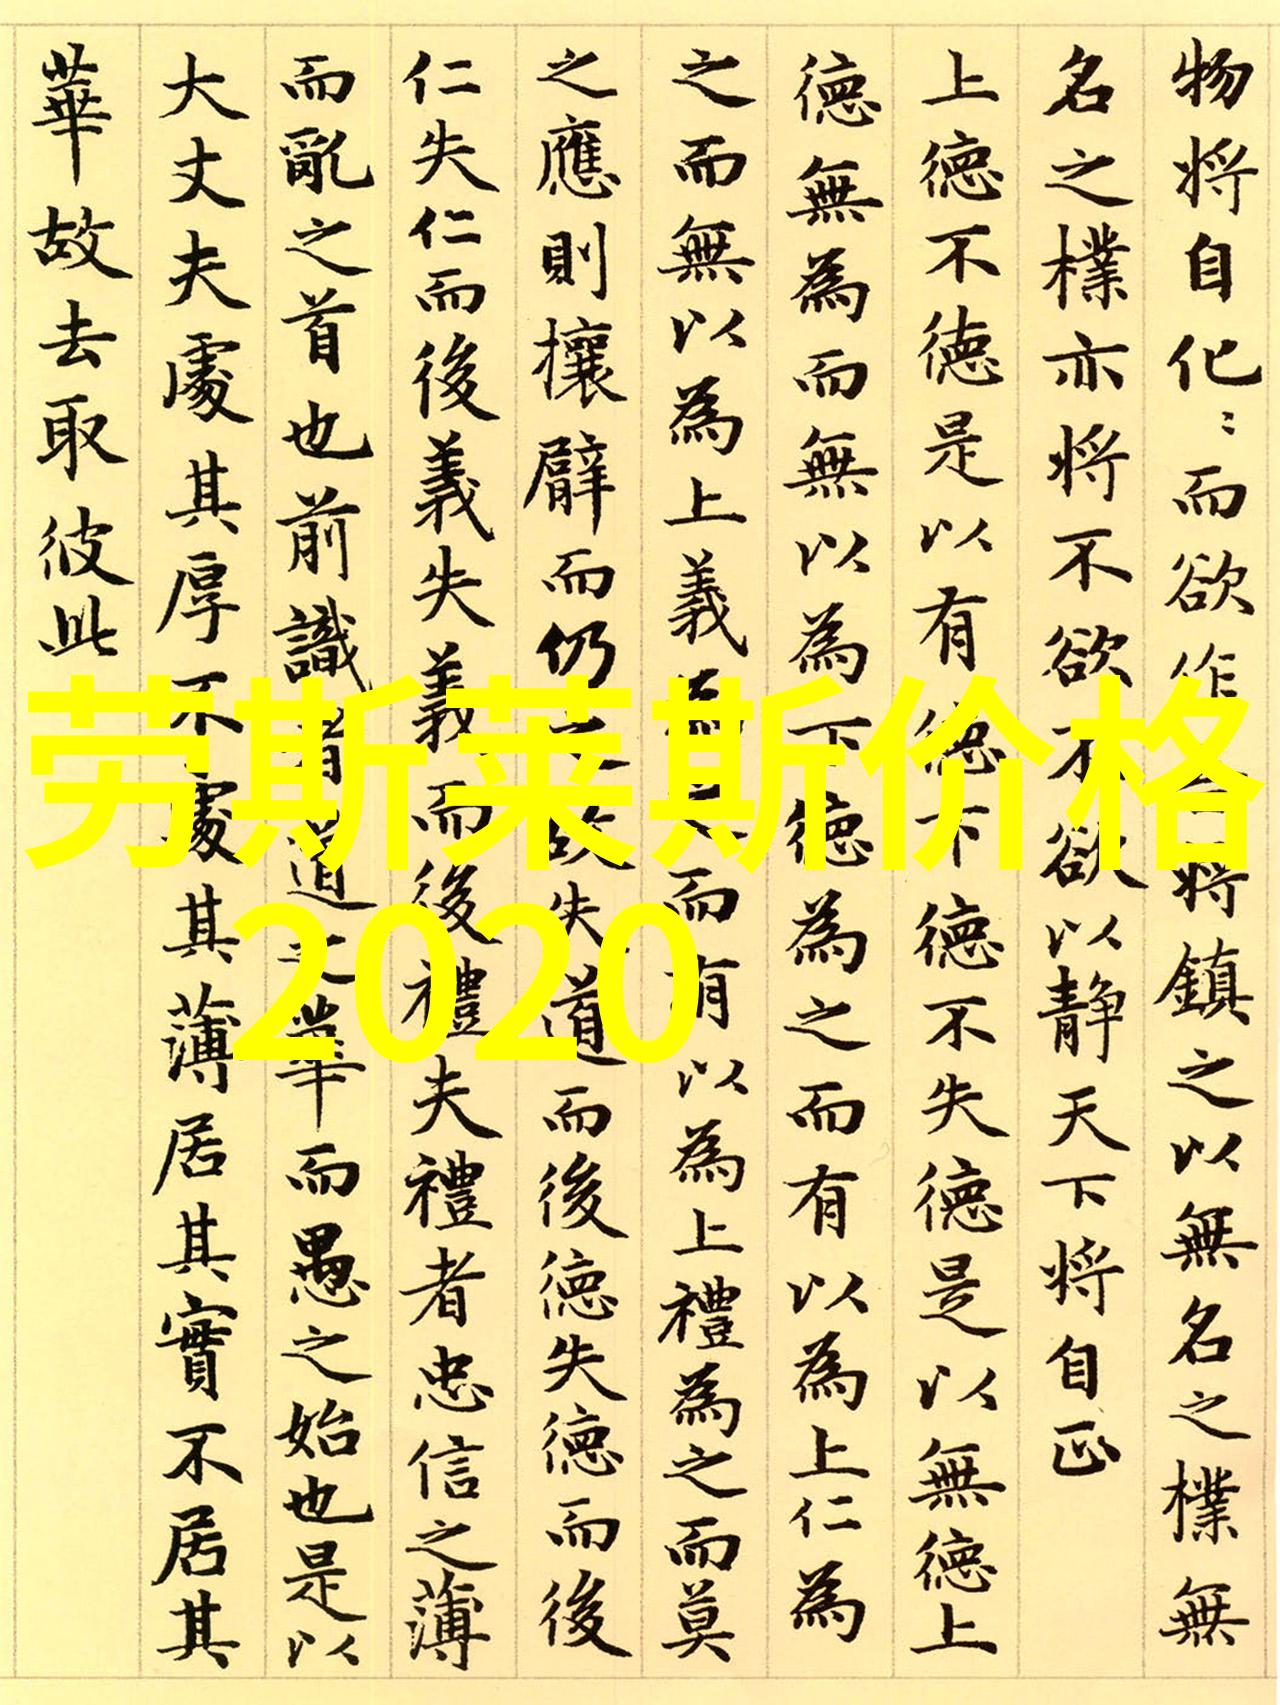 物将自化〻而欲作将鎮之以無名之樸無
名之樸亦将不欲不欲以静天下将自正
上德不德是以有德下德不失德是以無德上
德無為而無以為下德為之而有以為上仁為
之而無以為上義為之而有以為上禮為之而莫
之應則攘臂而仍之故失道而後德失德而後
仁失仁而後義失義而後禮夫禮者忠信之薄
而亂之首也前識者道之華而愚之始也是以
大丈夫處其厚不處其薄居其實不居其
華故去取彼此
劳斯莱斯价格
2020